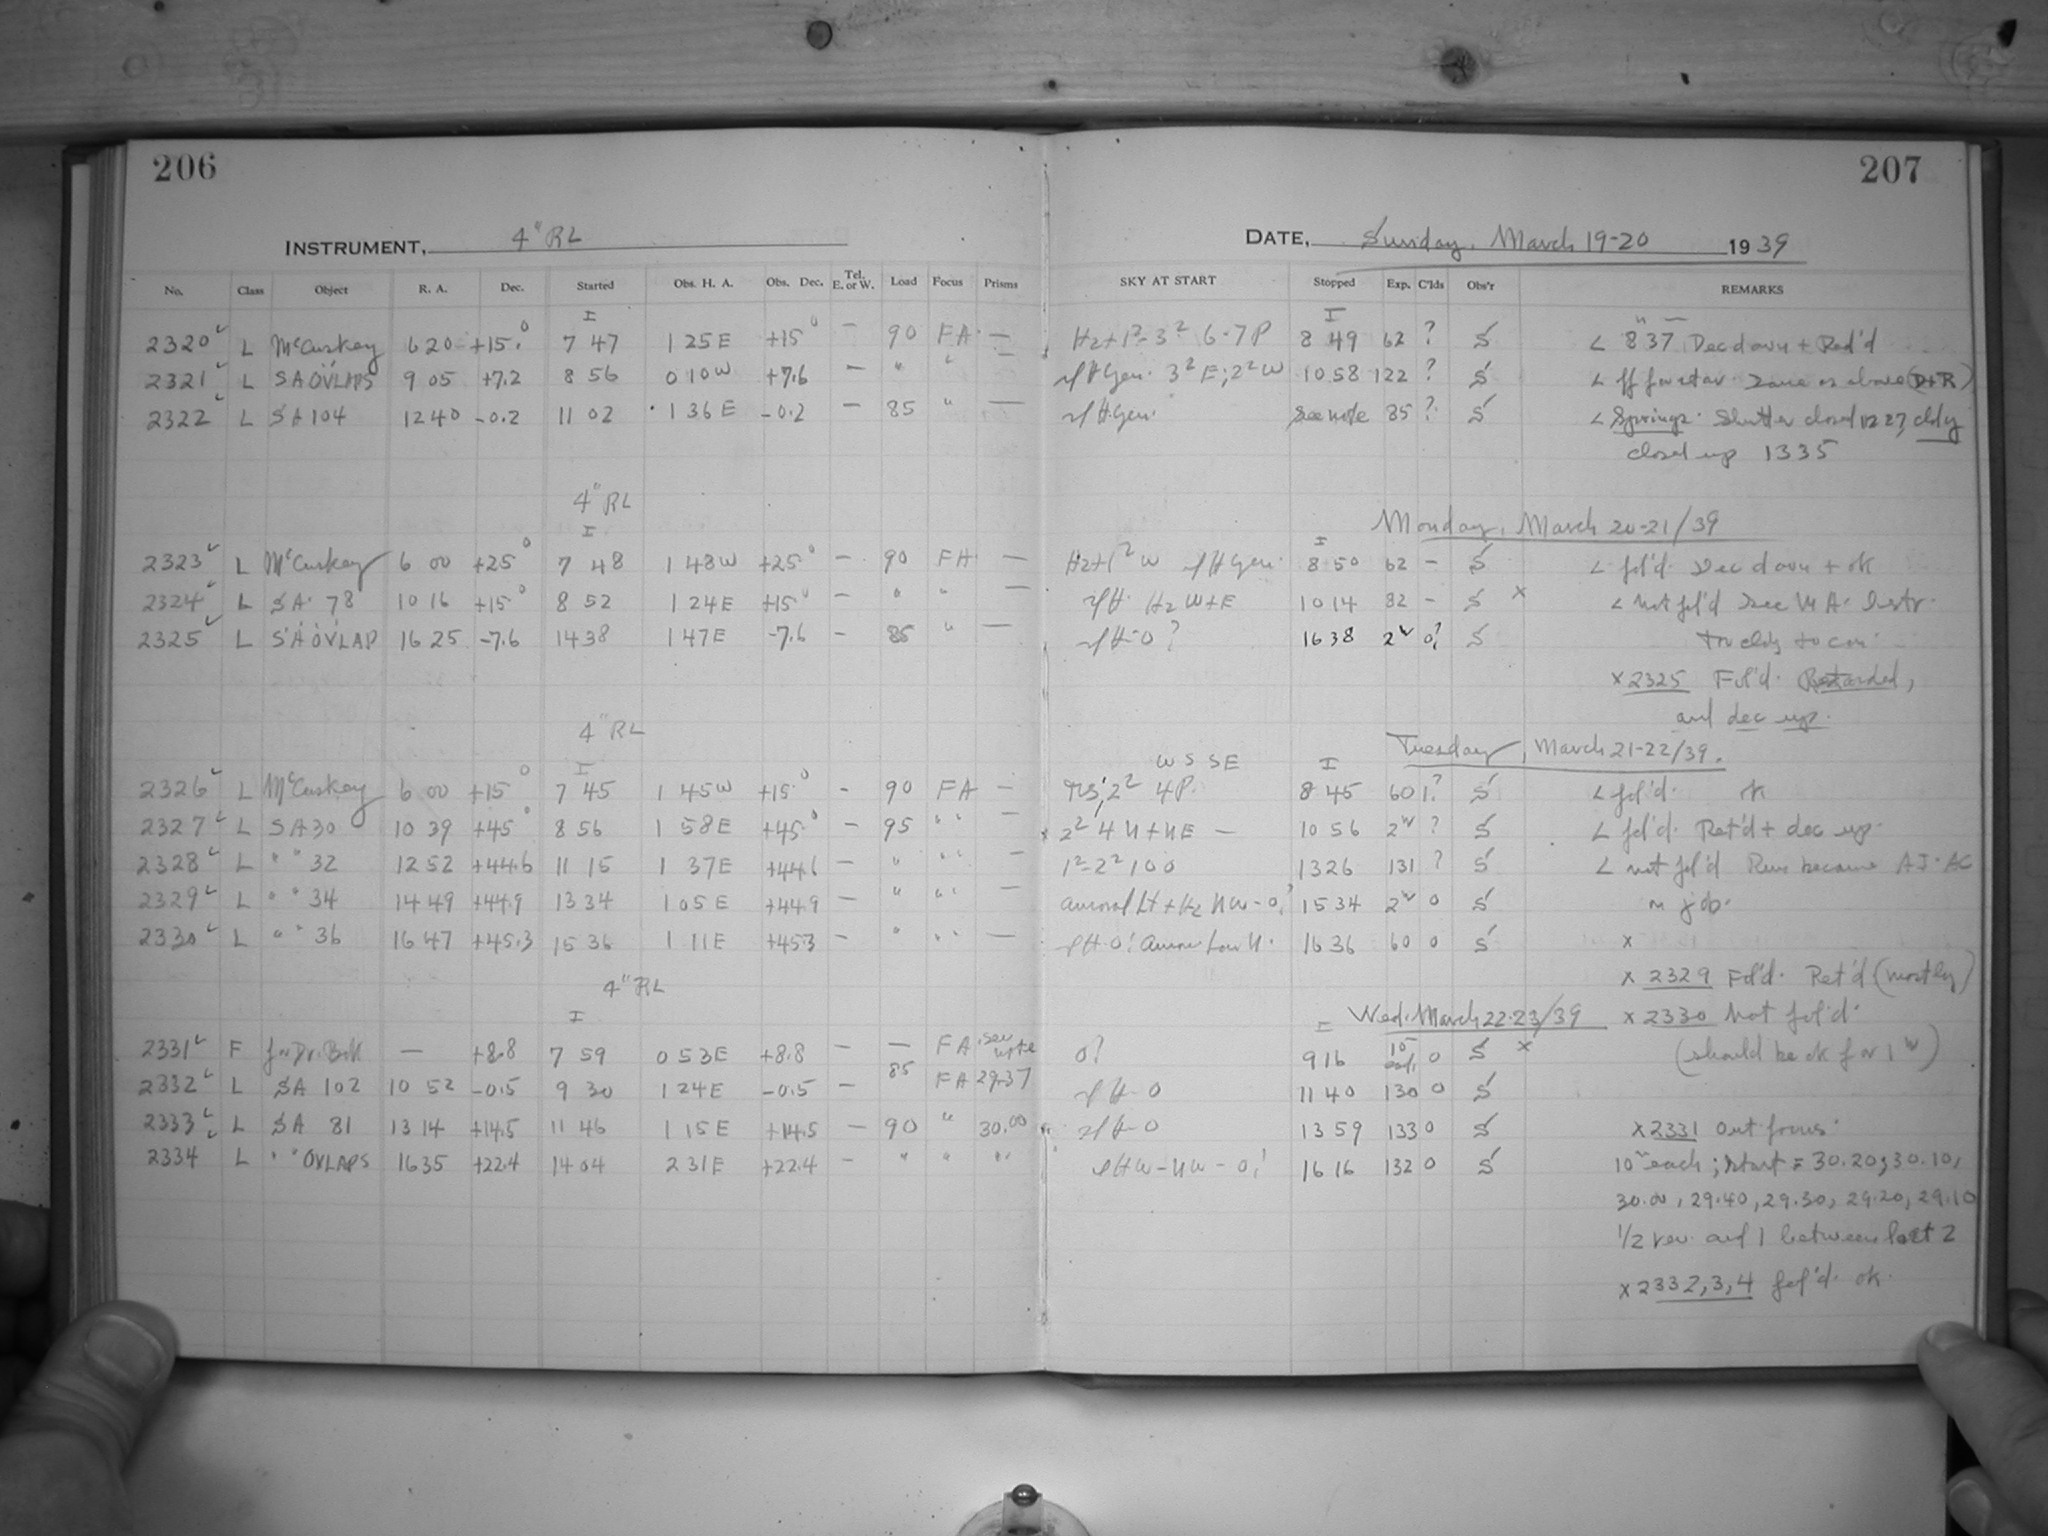 206
207
INSTRUMENT, 4" RL
DATE, Sunday, March 19-20 1939
No. Class Object R. A. Dec. Started Obs. H. A. Obs. Dec. Tel. E. or W. Load Focus Prisms SKY AT START Stopped Exp. C'lds Obs'r REMARKS
I I
2320 L McCuskey 6 20 +15° 7 47 1 25 E +15° — 90 FA — Hz+1²-3² 6-7P 8 49 62 ? S < 8 37 Dec down + Ret'd
2321 L SA OVLAPS 9 05 +7.2 8 56 0 10 W +7.6 — " " — 3² E; 2² W 10 58 122 ? S < (D+R)
2322 L SA 104 12 40 -0.2 11 02 1 36 E -0.2 — 85 " — see note 85 ? S < Springs. Shutter closed 12 27, cldy
closed up 1335
4" RL
Monday, March 20-21/39
I I
2323 L McCuskey 6 00 +25° 7 48 1 48 W +25° — 90 FA — Hz+1² W 8 50 62 — S < fol'd Dec down + ok
2324 L SA 78 10 16 +15° 8 52 1 24 E +15° — " " — Hz W+E 10 14 82 — S x < not fol'd
2325 L SA OVLAP 16 25 -7.6 14 38 1 47 E -7.6 — 85 " — 16 38 2ʰ 0? S
x 2325 Fol'd. Retarded,
and dec up.
4" RL
Tuesday, March 21-22/39.
W S SE
I I
2326 L McCuskey 6 00 +15° 7 45 1 45 W +15° - 90 FA — 2² 4P 8 45 60 1? S < fol'd. ok
2327 L SA 30 10 39 +45° 8 56 1 58 E +45° — 95 " " — x 2² 4 N+NE — 10 56 2ʰ ? S < fol'd. Ret'd + dec up.
2328 L " " 32 12 52 +44.6 11 15 1 37 E +44.6 — " " " — 1²-2² 13 26 131 ? S < not fol'd
2329 L " " 34 14 49 +44.9 13 34 1 05 E +44.9 — " " " — auroral Lt + Hz NW - 0? 15 34 2ʰ 0 S on job.
2330 L " " 36 16 47 +45.3 15 36 1 11 E +45.3 — " " " — 16 36 60 0 S x
x 2329 Fol'd. Ret'd (mostly)
4" RL
Wed. March 22-23/39
x 2330 Not fol'd.
(should be ok for 1ʰ)
I I
2331 F for Dr. Bok — +8.8 7 59 0 53 E +8.8 — — FA see note 0? 9 16 0 S x
2332 L SA 102 10 52 -0.5 9 30 1 24 E -0.5 — 85 FA 29.37 11 40 130 0 S
2333 L SA 81 13 14 +14.5 11 46 1 15 E +14.5 — 90 " 30.00 13 59 133 0 S x 2331 Out focus.
2334 L " " OVLAPS 16 35 +22.4 14 04 2 31 E +22.4 — " " " 16 16 132 0 S 10ᵐ each; start = 30.20; 30.10,
30.00, 29.40, 29.30, 29.20, 29.10
1/2 rev. and 1 between last 2
x 2332, 3, 4 fol'd. ok.